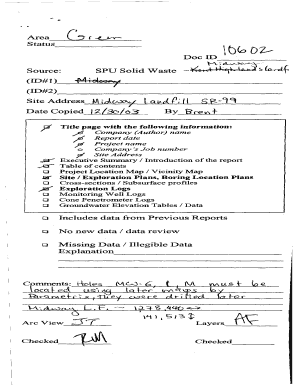 Area Green
Status
Doc ID 10602
Midway
Source: SPU Solid Waste - Kent Highlands Landf.
(ID#1) Midway
(ID#2)
Site Address Midway Landfill SR-99
Date Copied 12/30/03 By Brent
Title page with the following information:
Company (Author) name
Report date
Project name
Company's Job number
Site Address
Executive Summary / Introduction of the report
Table of contents
Project Location Map / Vicinity Map
Site / Exploration Plans, Boring Location Plans
Cross-sections / Subsurface profiles
Exploration Logs
Monitoring Well Logs
Cone Penetrometer Logs
Groundwater Elevation Tables / Data
Includes data from Previous Reports
No new data / data review
Missing Data / Illegible Data
Explanation
Comments: Holes MW-6, &, M must be
located using later maps by
Parametrix, They were drilled later
Midway L.F. -
Arc View JT Layers AF
Checked RM Checked